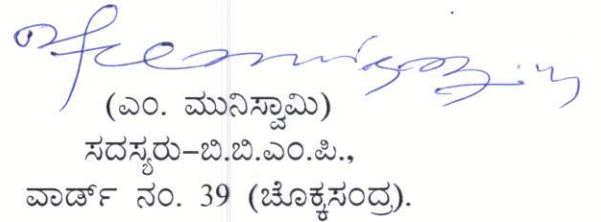 (ಎಂ. ಮುನಿಸ್ವಾಮಿ)
ಸದಸ್ಯರು–ಬಿ.ಬಿ.ಎಂ.ಪಿ.,
ವಾರ್ಡ್ ನಂ. 39 (ಚೊಕ್ಕಸಂದ್ರ).